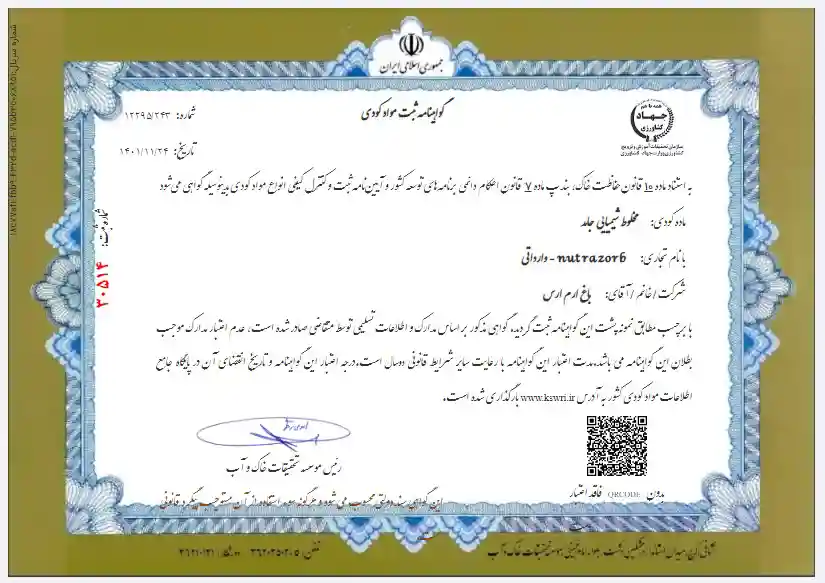 جمهوری اسلامی ایران
گواهینامه ثبت مواد کودی
شماره: ۱۲۲۹۵/۲۴۳
تاریخ: ۱۴۰۱/۱۱/۲۴
همه با هم
جهاد
کشاورزی
سازمان تحقیقات، آموزش و ترویج
کشاورزی وزارت جهاد کشاورزی
به استناد ماده ۱۰ قانون حفاظت خاک، بند پ ماده ۷ قانون احکام دائمی برنامه های توسعه کشور و آیین نامه ثبت و کنترل کیفی انواع مواد کودی بدینوسیله گواهی می شود
ماده کودی: مخلوط شیمیایی جامد
با نام تجاری: nutrazorb - وارداتی
شرکت/خانم/آقای: باغ ارم ارس
با برچسب مطابق نمونه پشت این گواهینامه ثبت گردیده. گواهی مذکور بر اساس مدارک و اطلاعات تسلیمی توسط متقاضی صادر شده است، عدم اعتبار مدارک موجب
بطلان این گواهینامه می باشد. مدت اعتبار این گواهینامه با رعایت سایر شرایط قانونی دو سال است. درجه اعتبار این گواهینامه و تاریخ انقضای آن در پایگاه جامع
اطلاعات مواد کودی کشور به آدرس www.kswri.ir بارگذاری شده است.
رئیس موسسه تحقیقات خاک و آب
بدون QRCODE فاقد اعتبار
است
این گواهی سند دولتی محسوب می شود و هرگونه سوء استفاده از آن مستوجب پیگرد قانونی
موسسه تحقیقات خاک و آب
تلفن:
شماره ثبت:
۳۰۵۱۴
شماره سریال: